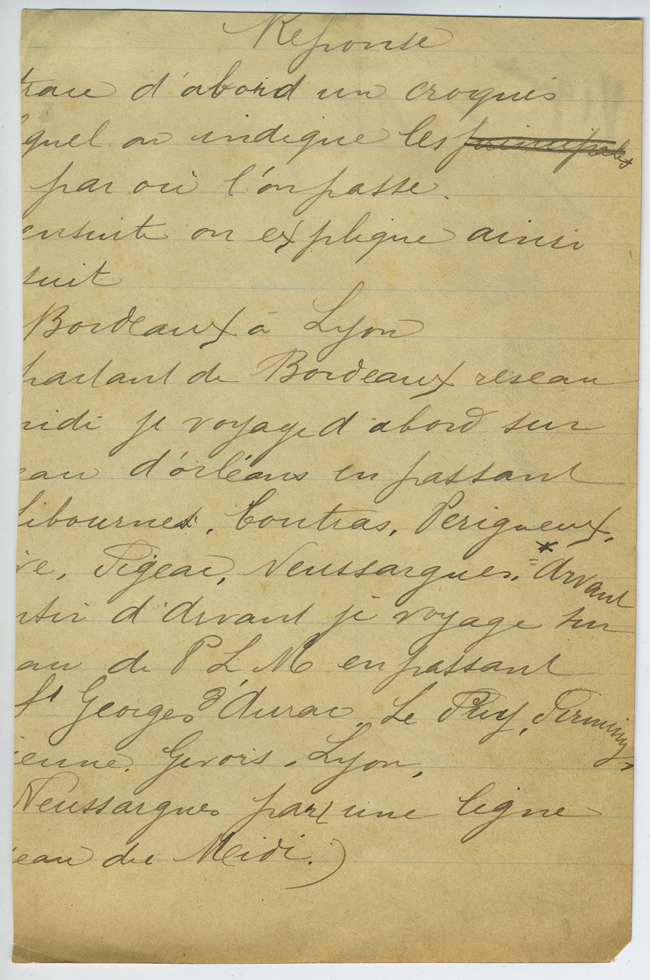 Réponse
trace d'abord un croquis
quel on indique les principales
par où l'on passe.
ensuite on explique ainsi
suit
Bordeaux à Lyon
partant de Bordeaux reseau
midi je voyage d'abord sur
eau d'orléans en passant
Libournes, Coutras, Perigueux,
ve, Figeac, Neussargues, * Arvant
rtir d'Arvant je voyage sur
eau de P L M en passant
St Georges d'Aurac, Le Puy, Firminy,
ienne, Givors, Lyon,
Neussargues part une ligne
eau du Midi.)